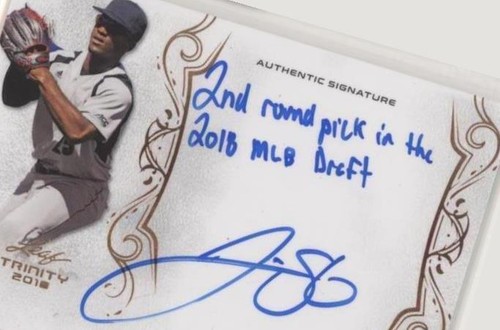 AUTHENTIC SIGNATURE
2nd round pick in the
2018 MLB Draft
Leaf
TRINITY
2018